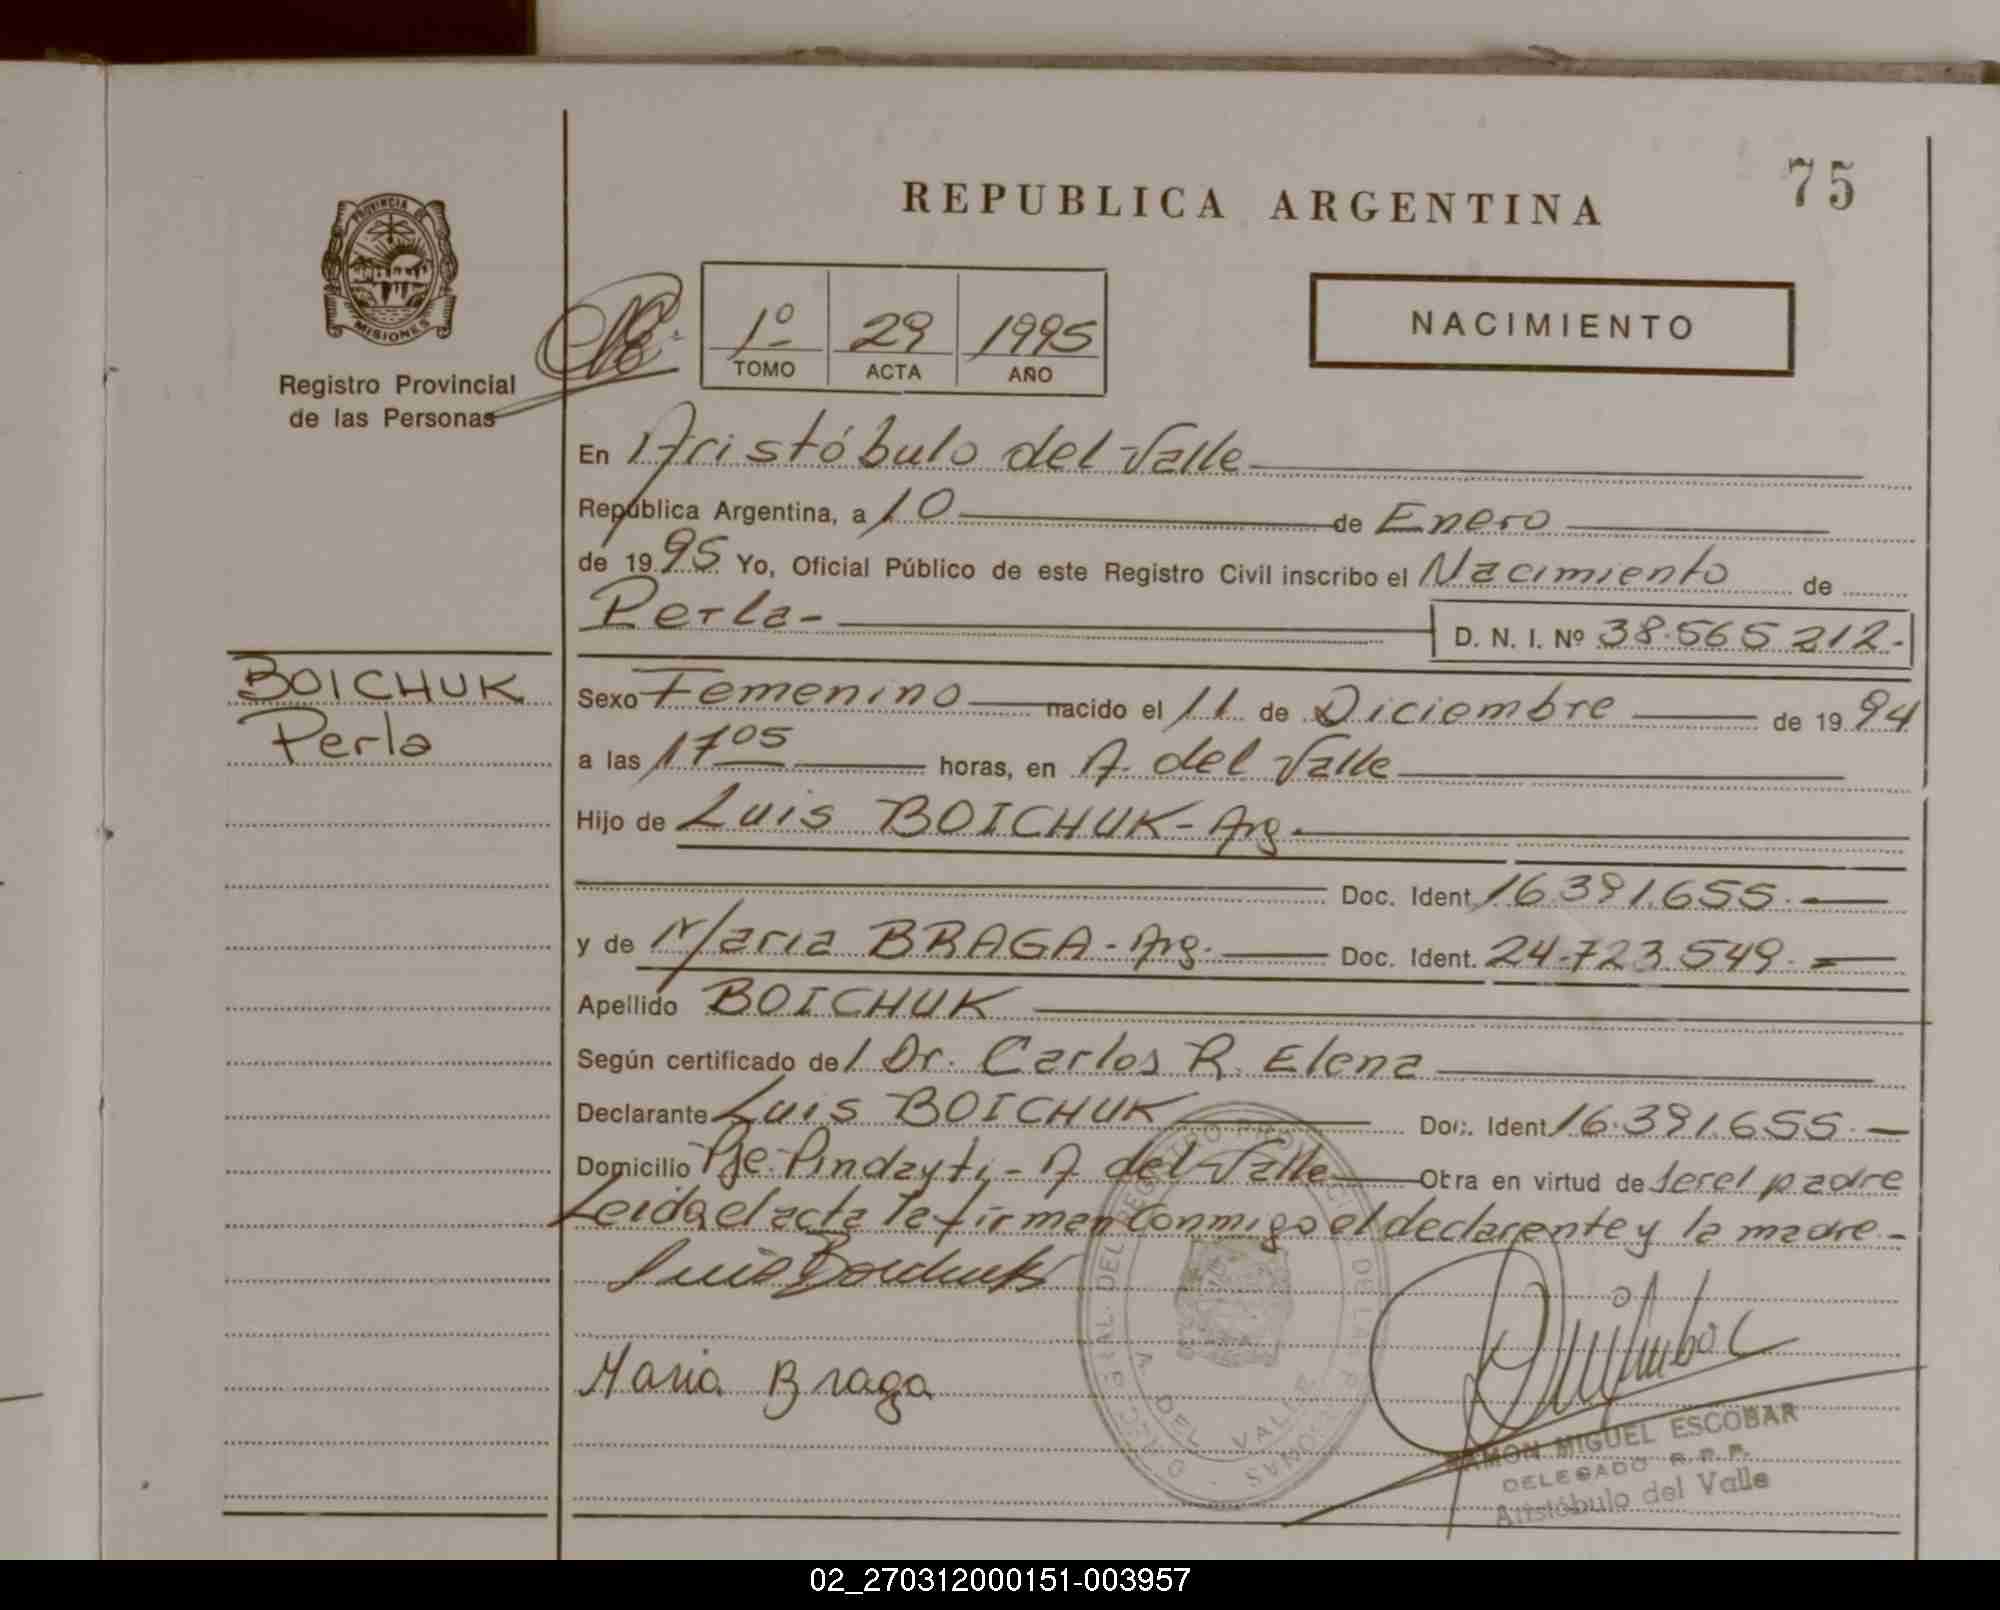 75
REPUBLICA ARGENTINA
PROVINCIA DE
MISIONES
Registro Provincial
de las Personas
1º 29 1995
TOMO ACTA AÑO
NACIMIENTO
En Aristóbulo del Valle
República Argentina, a 10 de Enero
de 1995 Yo, Oficial Público de este Registro Civil inscribo el Nacimiento de
Perla- D. N. I. Nº 38.565.212.-
BOICHUK
Perla
Sexo Femenino nacido el 11 de Diciembre de 1994
a las 17 05 horas, en A. del Valle
Hijo de Luis BOICHUK- Arg.
Doc. Ident. 16.391.655.-
y de Maria BRAGA- Arg. Doc. Ident. 24.723.549.-
Apellido BOICHUK
Según certificado del Dr. Carlos R. Elena
Declarante Luis BOICHUK Doc. Ident. 16.391.655.-
Domicilio Pje. Pindayti- A. del Valle Obra en virtud de ser el padre
Leida el acta la firman conmigo el declarante y la madre.-
Luis Boichuk
Maria Braga
RAMON MIGUEL ESCOBAR
DELEGADO R.R.P.
Aristóbulo del Valle
02_270312000151-003957